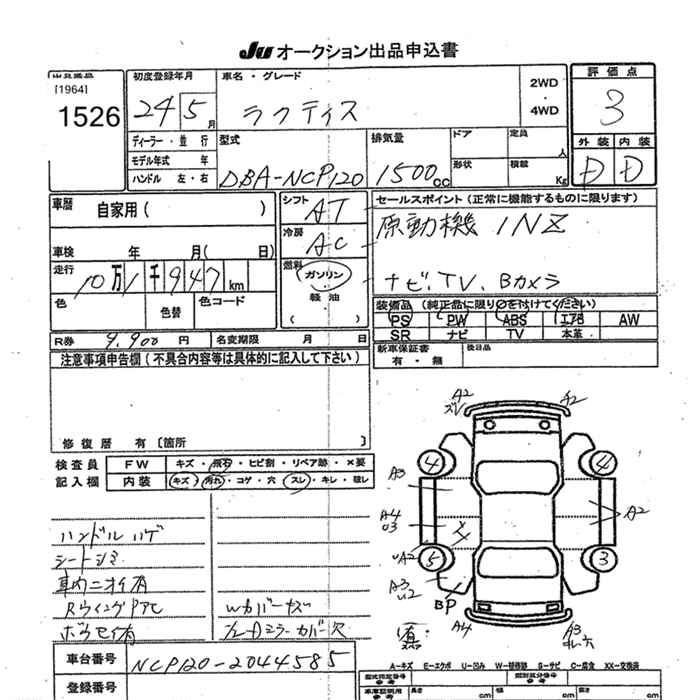 JU オークション出品申込書
出品番号
[1964]
1526
初度登録年月
24 5 月
車名・グレード
ラクティス
2WD
・
4WD
評価点
3
ディーラー・並行
モデル年式 年
ハンドル 左・右
型式
DBA-NCP120
排気量
1500 cc
ドア
定員
人
形状
積載
Kg
外装 内装
D D
車歴
自家用 ( )
シフト AT
冷房 AC
燃料 ガソリン
・
軽油
( )
セールスポイント (正常に機能するものに限ります)
原動機 1NZ
ナビ、TV、Bカメラ
車検 年 月( 日)
走行 10万1千947km
色
色替
色コード
装備品 (純正品に限り○を付けてください)
PS PW ABS エアB AW
SR ナビ TV 本革
R券 9,900 円
名変期限 月 日
新車保証書
有・無
後日品
注意事項申告欄 (不具合内容等は具体的に記入して下さい)
修復歴 有 〔箇所 〕
検査員 FW キズ・飛石・ヒビ割・リペア跡・×要
記入欄 内装 キズ・汚れ・コゲ・穴・スレ・キレ・破レ
ハンドルハゲ
シートシミ
車内ニオイ有
Wカバーキズ
A2
A2
4
4
A3
A4
U3
A2
UA2
5
3
A3
U2
BP
A4
A3
スペア
車台番号 NCP120-2044585
登録番号
A-キズ E-エクボ U-凹み W-補修跡 S-サビ C-腐食 XX-交換済
長さ cm
cm
cm